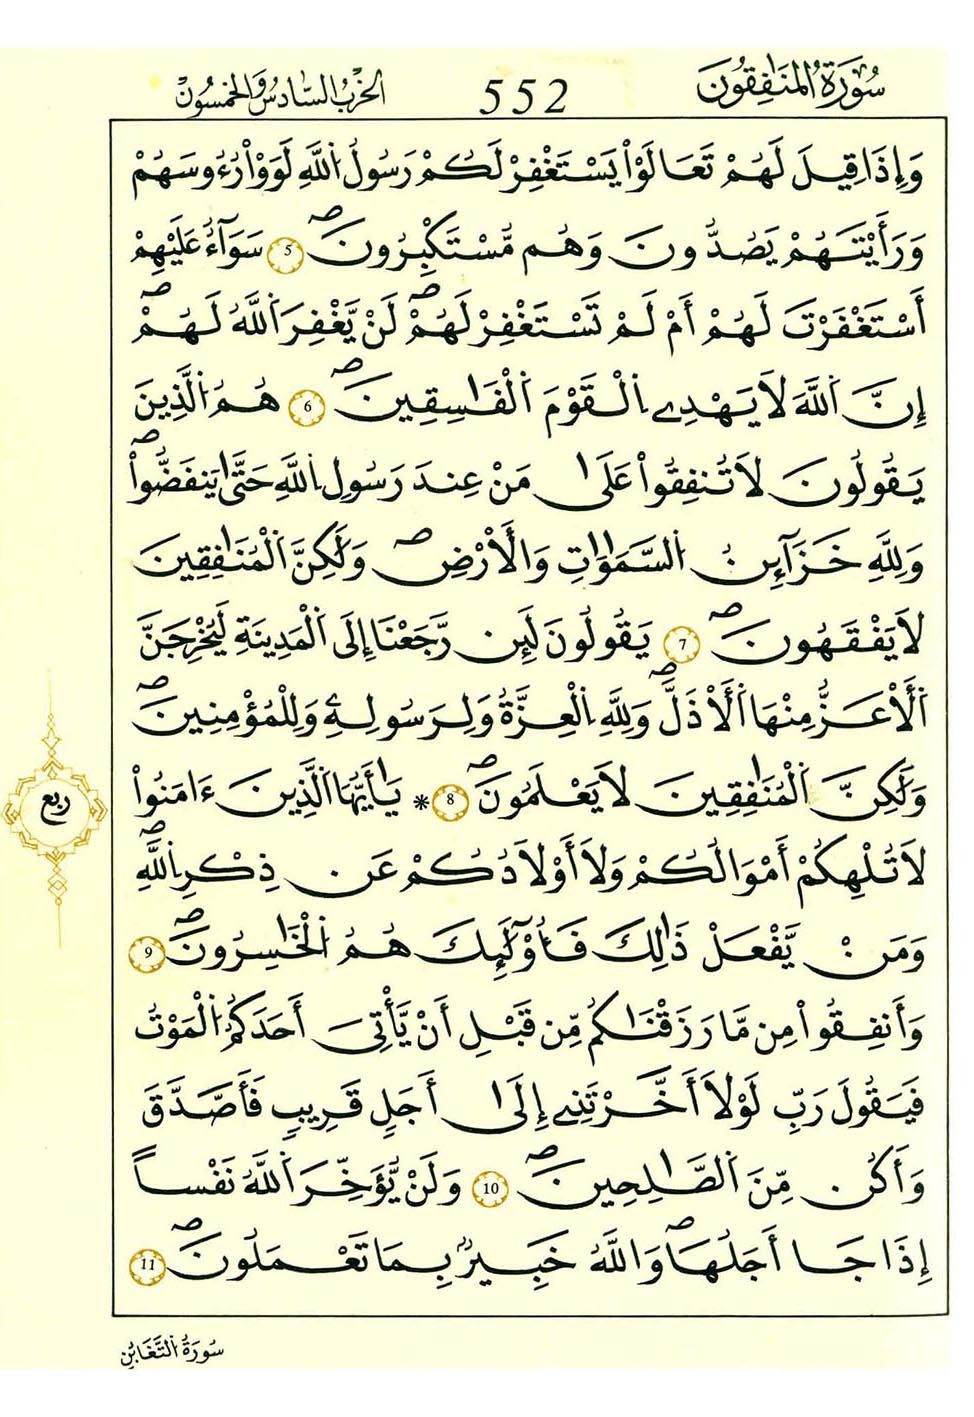 سُورَةُ المُنَافِقُونَ
552
الحِزْبُ السَّادِسُ وَالخَمْسُونَ
وَإِذَا قِيلَ لَهُمْ تَعَالَوْاْ يَسْتَغْفِرْ لَكُمْ رَسُولُ اُ۬للَّهِ لَوَوْاْ رُءُوسَهُمْ
وَرَأَيْتَهُمْ يَصُدُّونَ وَهُم مُّسْتَكْبِرُونَۖ 5 سَوَآءٌ عَلَيْهِمْ
أَسْتَغْفَرْتَ لَهُمْ أَمْ لَمْ تَسْتَغْفِرْ لَهُمْۖ لَنْ يَّغْفِرَ اَ۬للَّهُ لَهُمْۖ
إِنَّ اَ۬للَّهَ لَا يَهْدِے اِ۬لْقَوْمَ اَ۬لْفَٰسِقِينَۖ 6 هُمُ اُ۬لَّذِينَ
يَقُولُونَ لَا تُنفِقُواْ عَلَىٰ مَنْ عِندَ رَسُولِ اِ۬للَّهِ حَتَّىٰ يَنفَضُّواْۖ
وَلِلَّهِ خَزَآئِنُ اُ۬لسَّمَٰوَٰتِ وَالْأَرْضِۖ وَلَٰكِنَّ اَ۬لْمُنَٰفِقِينَ
لَا يَفْقَهُونَۖ 7 يَقُولُونَ لَئِن رَّجَعْنَا إِلَى اَ۬لْمَدِينَةِ لَيُخْرِجَنَّ
اَ۬لْأَعَزُّ مِنْهَا اَ۬لْأَذَلَّۖ وَلِلَّهِ اِ۬لْعِزَّةُ وَلِرَسُولِهِۦ وَلِلْمُؤْمِنِينَۖ
وَلَٰكِنَّ اَ۬لْمُنَٰفِقِينَ لَا يَعْلَمُونَۖ 8 * يَٰأَيُّهَا اَ۬لَّذِينَ ءَامَنُواْ
ربع
لَا تُلْهِكُمْ أَمْوَٰلُكُمْ وَلَا أَوْلَادُكُمْ عَن ذِكْرِ اِ۬للَّهِۖ
وَمَنْ يَّفْعَلْ ذَٰلِكَ فَأُوْلَٰئِكَ هُمُ اُ۬لْخَٰسِرُونَۖ 9
وَأَنفِقُواْ مِن مَّا رَزَقْنَٰكُم مِّن قَبْلِ أَنْ يَّأْتِىَ أَحَدَكُمُ اُ۬لْمَوْتُ
فَيَقُولَ رَبِّ لَوْلَا أَخَّرْتَنِے إِلَىٰ أَجَلٍ قَرِيبٍ فَأَصَّدَّقَ
وَأَكُن مِّنَ اَ۬لصَّٰلِحِينَۖ 10 وَلَنْ يُّؤَخِّرَ اَ۬للَّهُ نَفْساً
إِذَا جَا أَجَلُهَاۖ وَاللَّهُ خَبِيرٌۢ بِمَا تَعْمَلُونَۖ 11
سُورَةُ اُ۬لتَّغَابُنِ